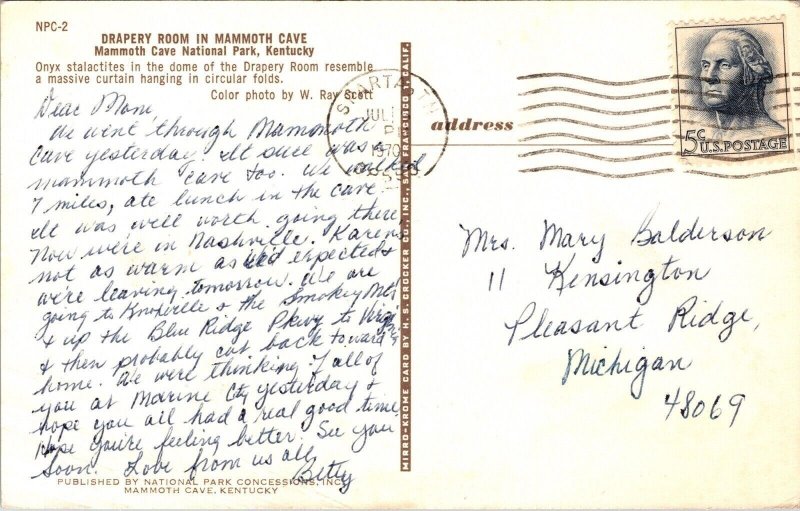 NPC-2
DRAPERY ROOM IN MAMMOTH CAVE
Mammoth Cave National Park, Kentucky
Onyx stalactites in the dome of the Drapery Room resemble
a massive curtain hanging in circular folds.
Color photo by W. Ray Scott
Dear Mom,
We went through Mammonoth
Cave yesterday. It sure was a
mammoth cave too. We walked
7 miles, ate lunch in the cave.
It was well worth going there.
Now we're in Nashville. Karens
not as warm as we'd expected &
we're leaving tomorrow. We are
going to Knoxville & the Smokey Mts
& up the Blue Ridge Pkwy to Virg.
& then probably cut back toward
home. We were thinking of all of
you at Marine Cty yesterday &
hope you all had a real good time
Hope you're feeling better. See you
soon. Love from us all,
Betty
PUBLISHED BY NATIONAL PARK CONCESSIONS, INC.
MAMMOTH CAVE, KENTUCKY
MIRRO-KROME CARD BY H. S. CROCKER CO., INC., SAN FRANCISCO 1, CALIF.
SPARTA TN
JUL
P
1970
address
5c U.S. POSTAGE
Mrs. Mary Balderson
11 Kensington
Pleasant Ridge,
Michigan
48069